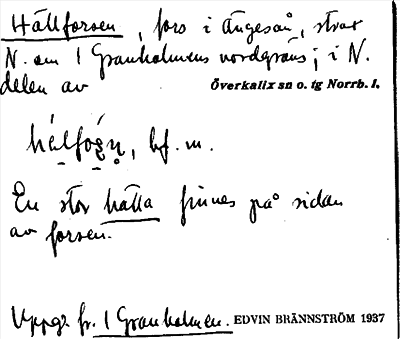 Hällforsen, fors i Ängesån, strax
N. om 1 Granholmens nordgräns; i N.
delen av Överkalix sn o. tg Norrb. l.
bf. m.
En stor hälla finnes på sidan
av forsen.
Uppg. fr. 1 Granholmen. EDVIN BRÄNNSTRÖM 1937